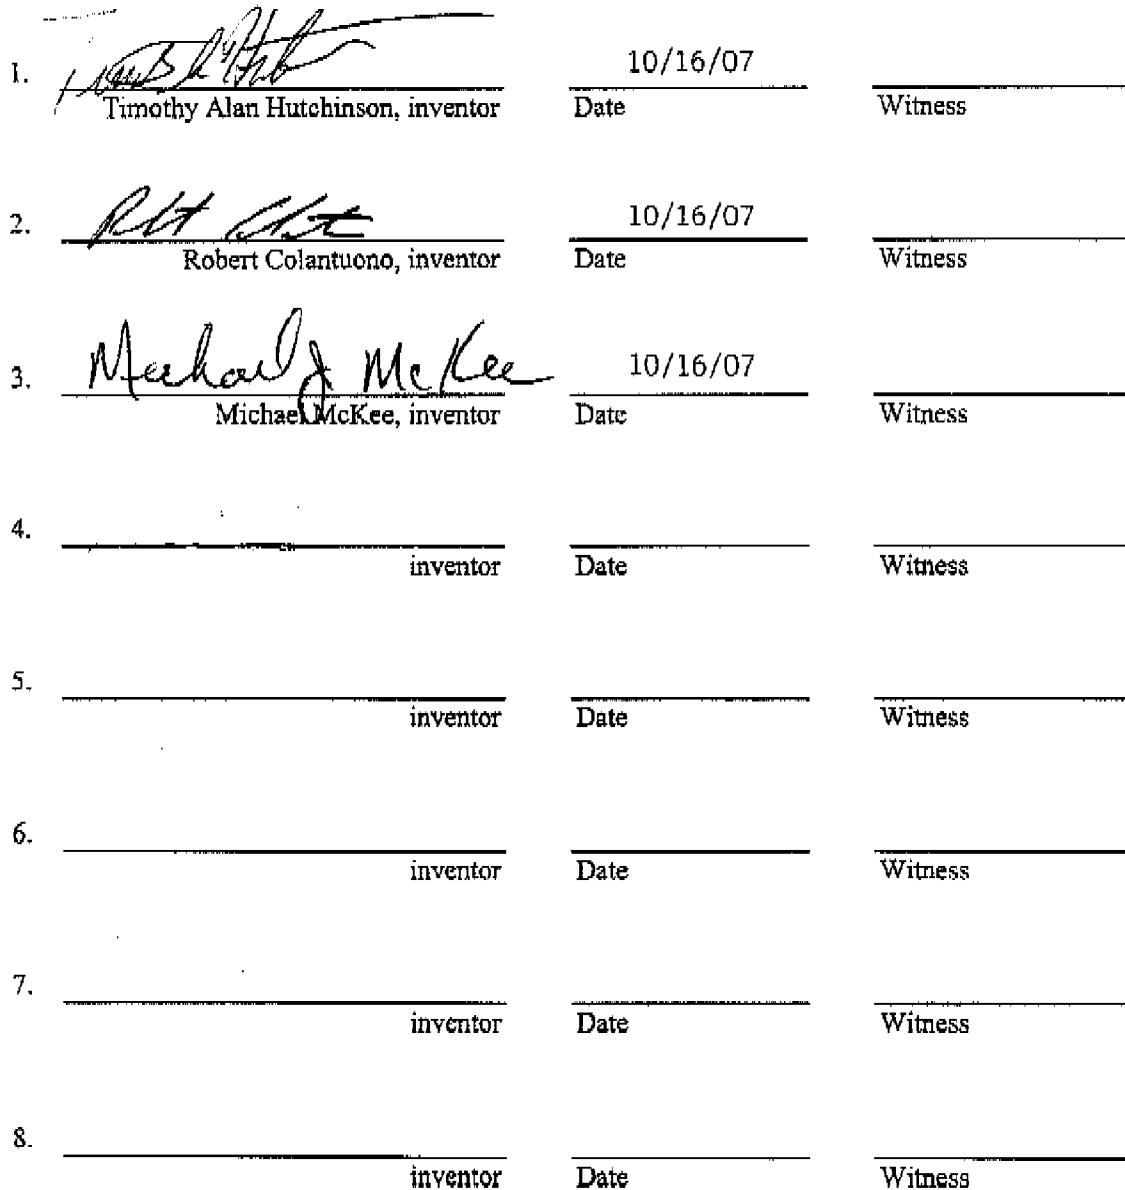 1. 10/16/07
Timothy Alan Hutchinson, inventor Date Witness
2. 10/16/07
Robert Colantuono, inventor Date Witness
3. Michael J McKee 10/16/07
Michael McKee, inventor Date Witness
4.
inventor Date Witness
5.
inventor Date Witness
6.
inventor Date Witness
7.
inventor Date Witness
8.
inventor Date Witness